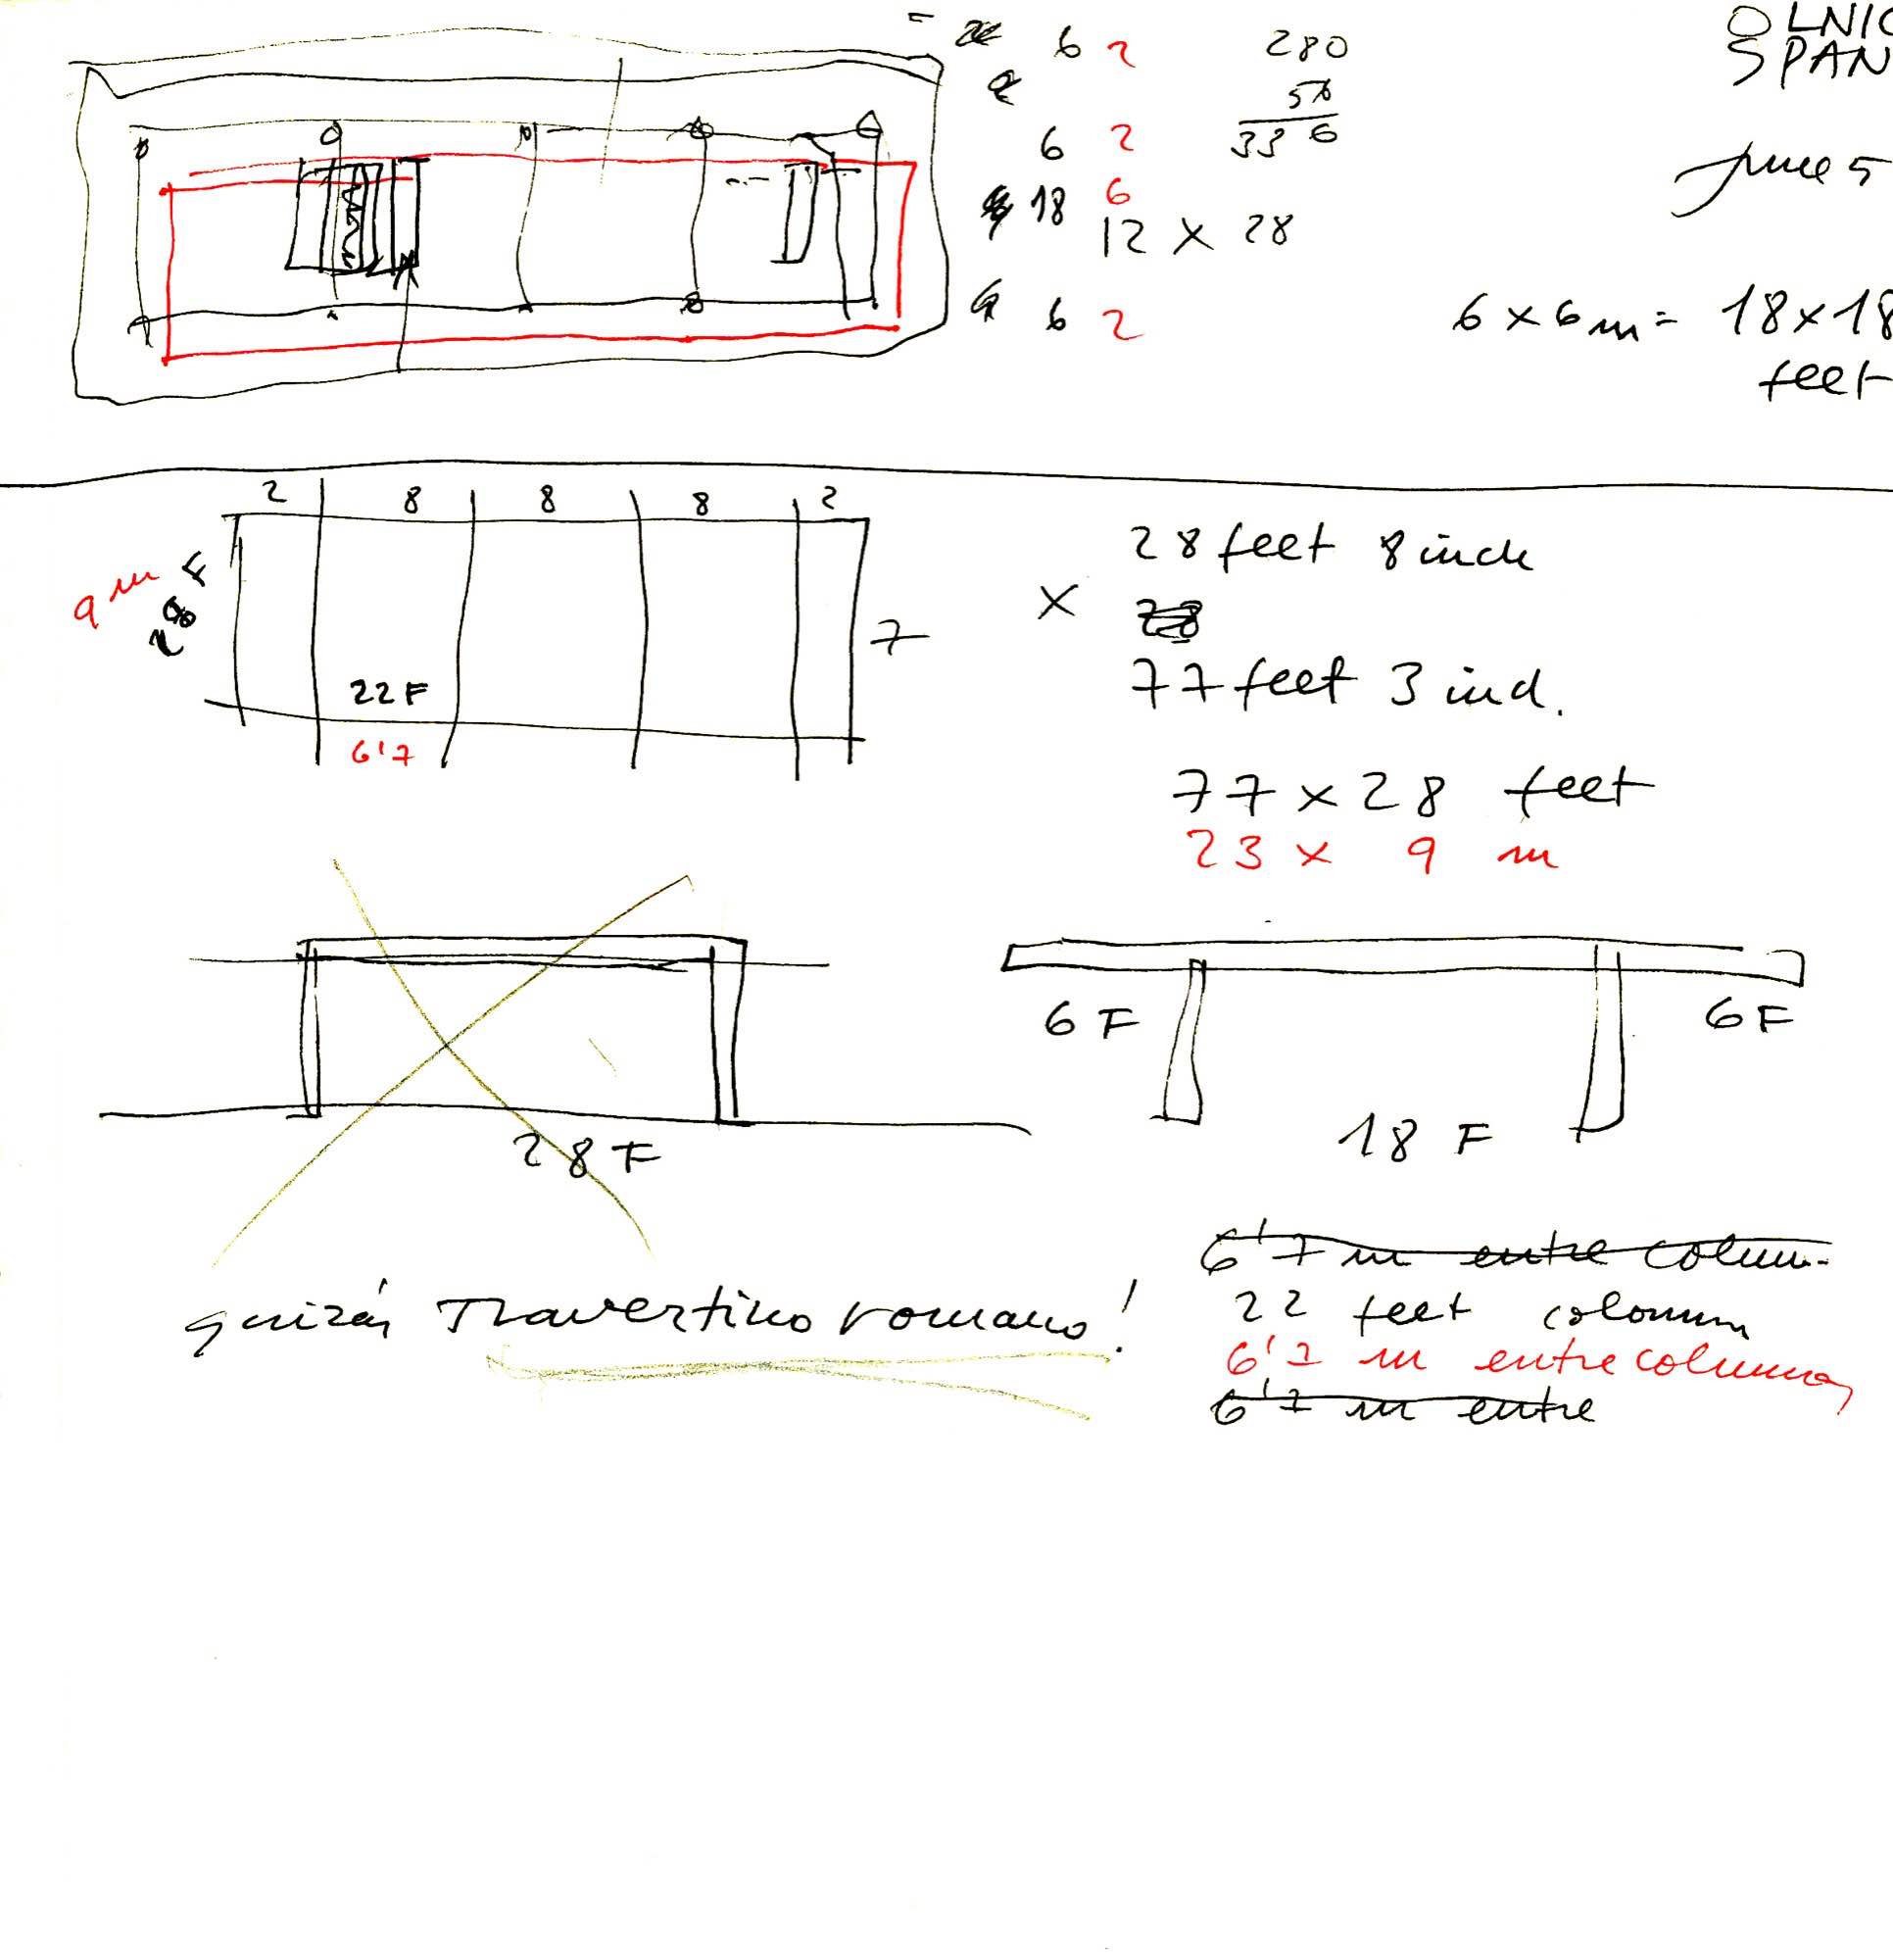 6 2
280
OLNIC
SPAN
56
6 2
33 6
june 5
18 6
12 x 28
6 2
6 x 6 m = 18x18
feet
2 8 8 8 2
28 feet 8 inch
9 m
28 F
x
7
77 feet 3 ind.
22 F
6'7
77 x 28 feet
23 x 9 m
6 F
6 F
28 F
18 F
6'7 m entre colum.
quizás Travertino romano!
22 feet colomn
6'7 m entre columnas
6'7 m entre